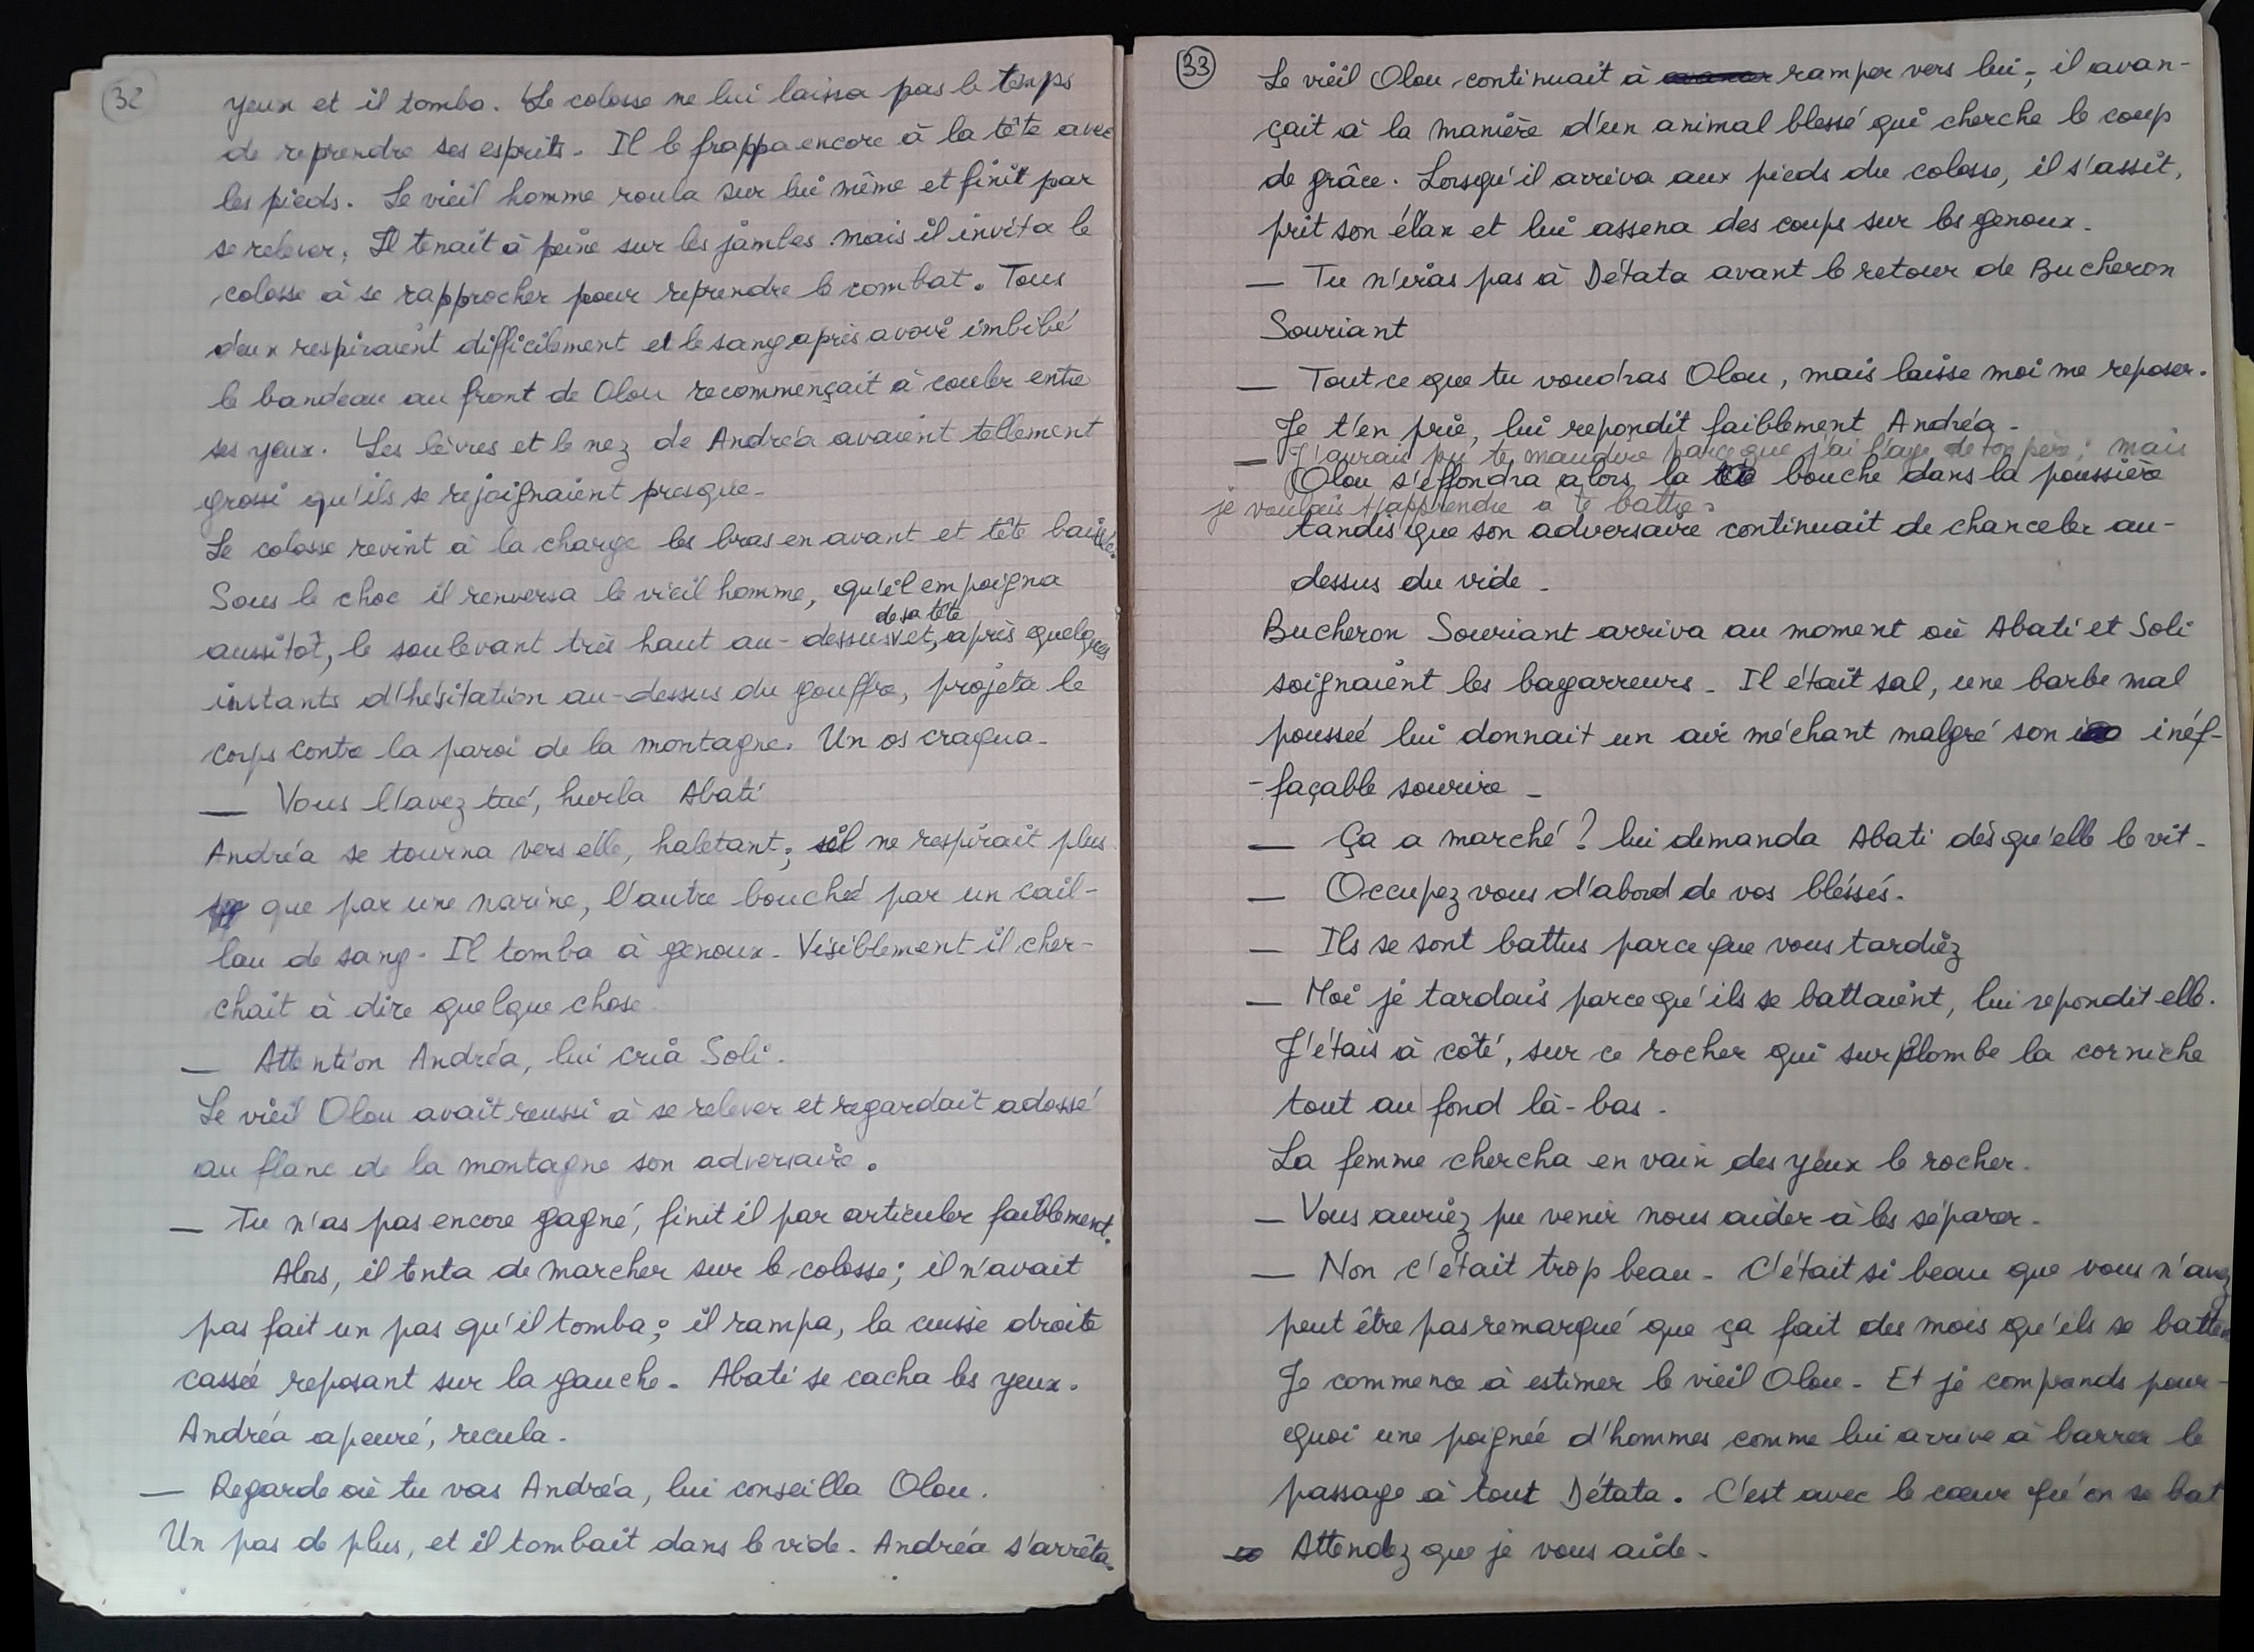 32
yeux et il tomba. Le colosse ne lui laissa pas le temps
de reprendre ses esprits. Il le frappa encore à la tête avec
les pieds. Le vieil homme roula sur lui même et finit par
se relever. Il tenait à peine sur les jambes mais il invita le
colosse à se rapprocher pour reprendre le combat. Tous
deux respiraient difficilement et le sang après avoir imbibé
le bandeau au front de Olou recommençait à couler entre
ses yeux. Les lèvres et le nez de Andréa avaient tellement
grossi qu'ils se rejoignaient presque.
Le colosse revint à la charge les bras en avant et tête baissée.
Sous le choc il renversa le vieil homme, qu'il empoigna
de sa tête
aussitôt, le soulevant très haut au-dessus et, après quelques
instants d'hésitation au-dessus du gouffre, projeta le
corps contre la paroi de la montagne. Un os craqua.
— Vous l'avez tué, hurla Abati
Andréa se tourna vers elle, haletant; il ne respirait plus
que par une narine, l'autre bouchée par un cail-
lau de sang. Il tomba à genoux. Visiblement il cher-
chait à dire quelque chose
— Attention Andréa, lui cria Soli.
Le vieil Olou avait reussi à se relever et regardait adossé
au flanc de la montagne son adversaire.
— Tu n'as pas encore gagné, finit il par articuler faiblement.
Alors, il tenta de marcher sur le colosse; il n'avait
pas fait un pas qu'il tomba; il rampa, la cuisse droite
cassée reposant sur la gauche. Abati se cacha les yeux.
Andréa apeuré, recula.
— Regarde où tu vas Andréa, lui conseilla Olou.
Un pas de plus, et il tombait dans le vide. Andréa s'arrêta.
33
Le vieil Olou continuait à ramper vers lui; il avan-
çait à la manière d'un animal blessé qui cherche le coup
de grâce. Lorsqu'il arriva aux pieds du colosse, il s'assit,
prit son élan et lui assena des coups sur les genoux.
— Tu n'iras pas à Détata avant le retour de Bucheron
Souriant
— Tout ce que tu voudras Olou, mais laisse moi me reposer.
Je t'en prie, lui repondit faiblement Andréa.
— J'aurais pu te maudire parce que j'ai l'age de ton père; mais
Olou s'effondra alors la bouche dans la poussière
je voulais t'apprendre à te battre.
tandis que son adversaire continuait de chanceler au-
dessus du vide.
Bucheron Souriant arriva au moment où Abati et Soli
soignaient les bagarreurs. Il était sal, une barbe mal
poussée lui donnait un air méchant malgré son inéf-
-façable sourire.
— Ça a marché? lui demanda Abati dès qu'elle le vit.
— Occupez vous d'abord de vos bléssés.
— Ils se sont battus parce que vous tardiez
— Moi je tardais parce qu'ils se battaient, lui repondit elle.
J'étais à côté, sur ce rocher qui surplombe la corniche
tout au fond là-bas.
La femme chercha en vain des yeux le rocher.
— Vous auriez pu venir nous aider à les séparer.
— Non c'était trop beau. C'était si beau que vous n'avez
peut être pas remarqué que ça fait des mois qu'ils se batten
Je commence à estimer le vieil Olou. Et je comprends pour-
quoi une poignée d'hommes comme lui arrive à barrer le
passage à tout Détata. C'est avec le cœur qu'on se bat
Attendez que je vous aide.